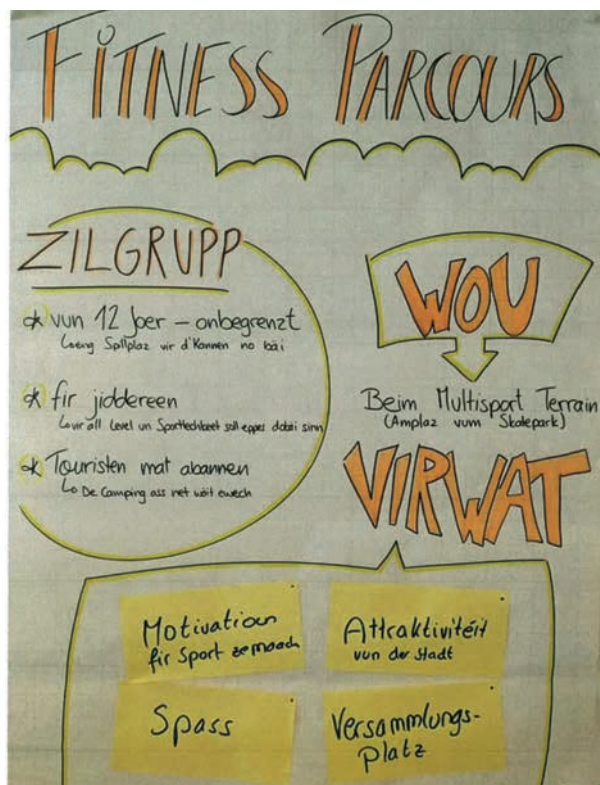 FITNESS PARCOURS
ZILGRUPP
vun 12 Joer – onbegrenzt
eng Spillplaz vir d'Kannen no bäi
fir jiddereen
vir all Level un Sportlechkeet soll eppes dobäi sinn
Touristen mat abannen
De Camping ass net wäit ewech
WOU
Beim Multisport Terrain
(Amplaz vum Skatepark)
VIRWAT
Motivatioun
fir Sport ze maach
Attraktivitéit
vun der Stadt
Spass
Versammlungs-
platz